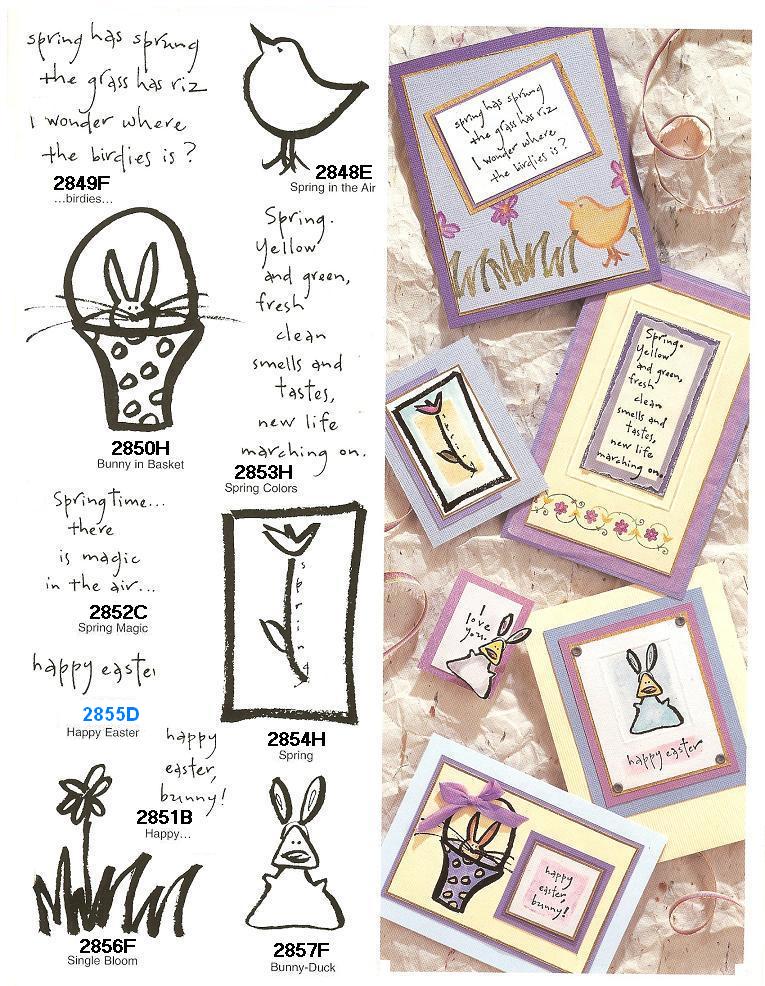 spring has sprung
the grass has riz
I wonder where
the birdies is?
2849F
...birdies...
2848E
Spring in the Air
2850H
Bunny in Basket
Spring.
Yellow
and green,
fresh
clean
smells and
tastes,
new life
marching on.
2853H
Spring Colors
Springtime...
there
is magic
in the air...
2852C
Spring Magic
happy easter
2855D
Happy Easter
spring
2854H
Spring
happy
easter,
bunny!
2851B
Happy...
2856F
Single Bloom
2857F
Bunny-Duck
spring has sprung
the grass has riz
I wonder where
the birdies is?
Spring.
Yellow
and green,
fresh
clean
smells and
tastes,
new life
marching on.
spring
I
love
you.
happy easter
happy
easter,
bunny!